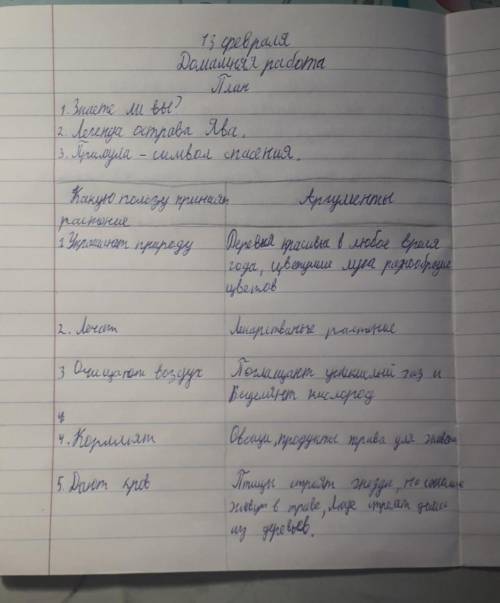 13 февраля
Домашняя работа
План
1. Знаете ли вы?
2. Легенда острова Ява.
3. Примула – символ спасения.
Какую пользу приносят
растение
Аргументы
1. Украшают природу
Деревья красивы в любое время
года, цветущие луга разнообразие
цветов
2. Лечат
Лекарственные растение
3 Очищают воздух
Поглащают углекислый газ и
Выделяют кислород
4
4. Кормят
Овощи, продукты трава для живот
5. Дают кров
Птицы строят гнёзда,
живут в траве, люде строят дома
из деревьев.